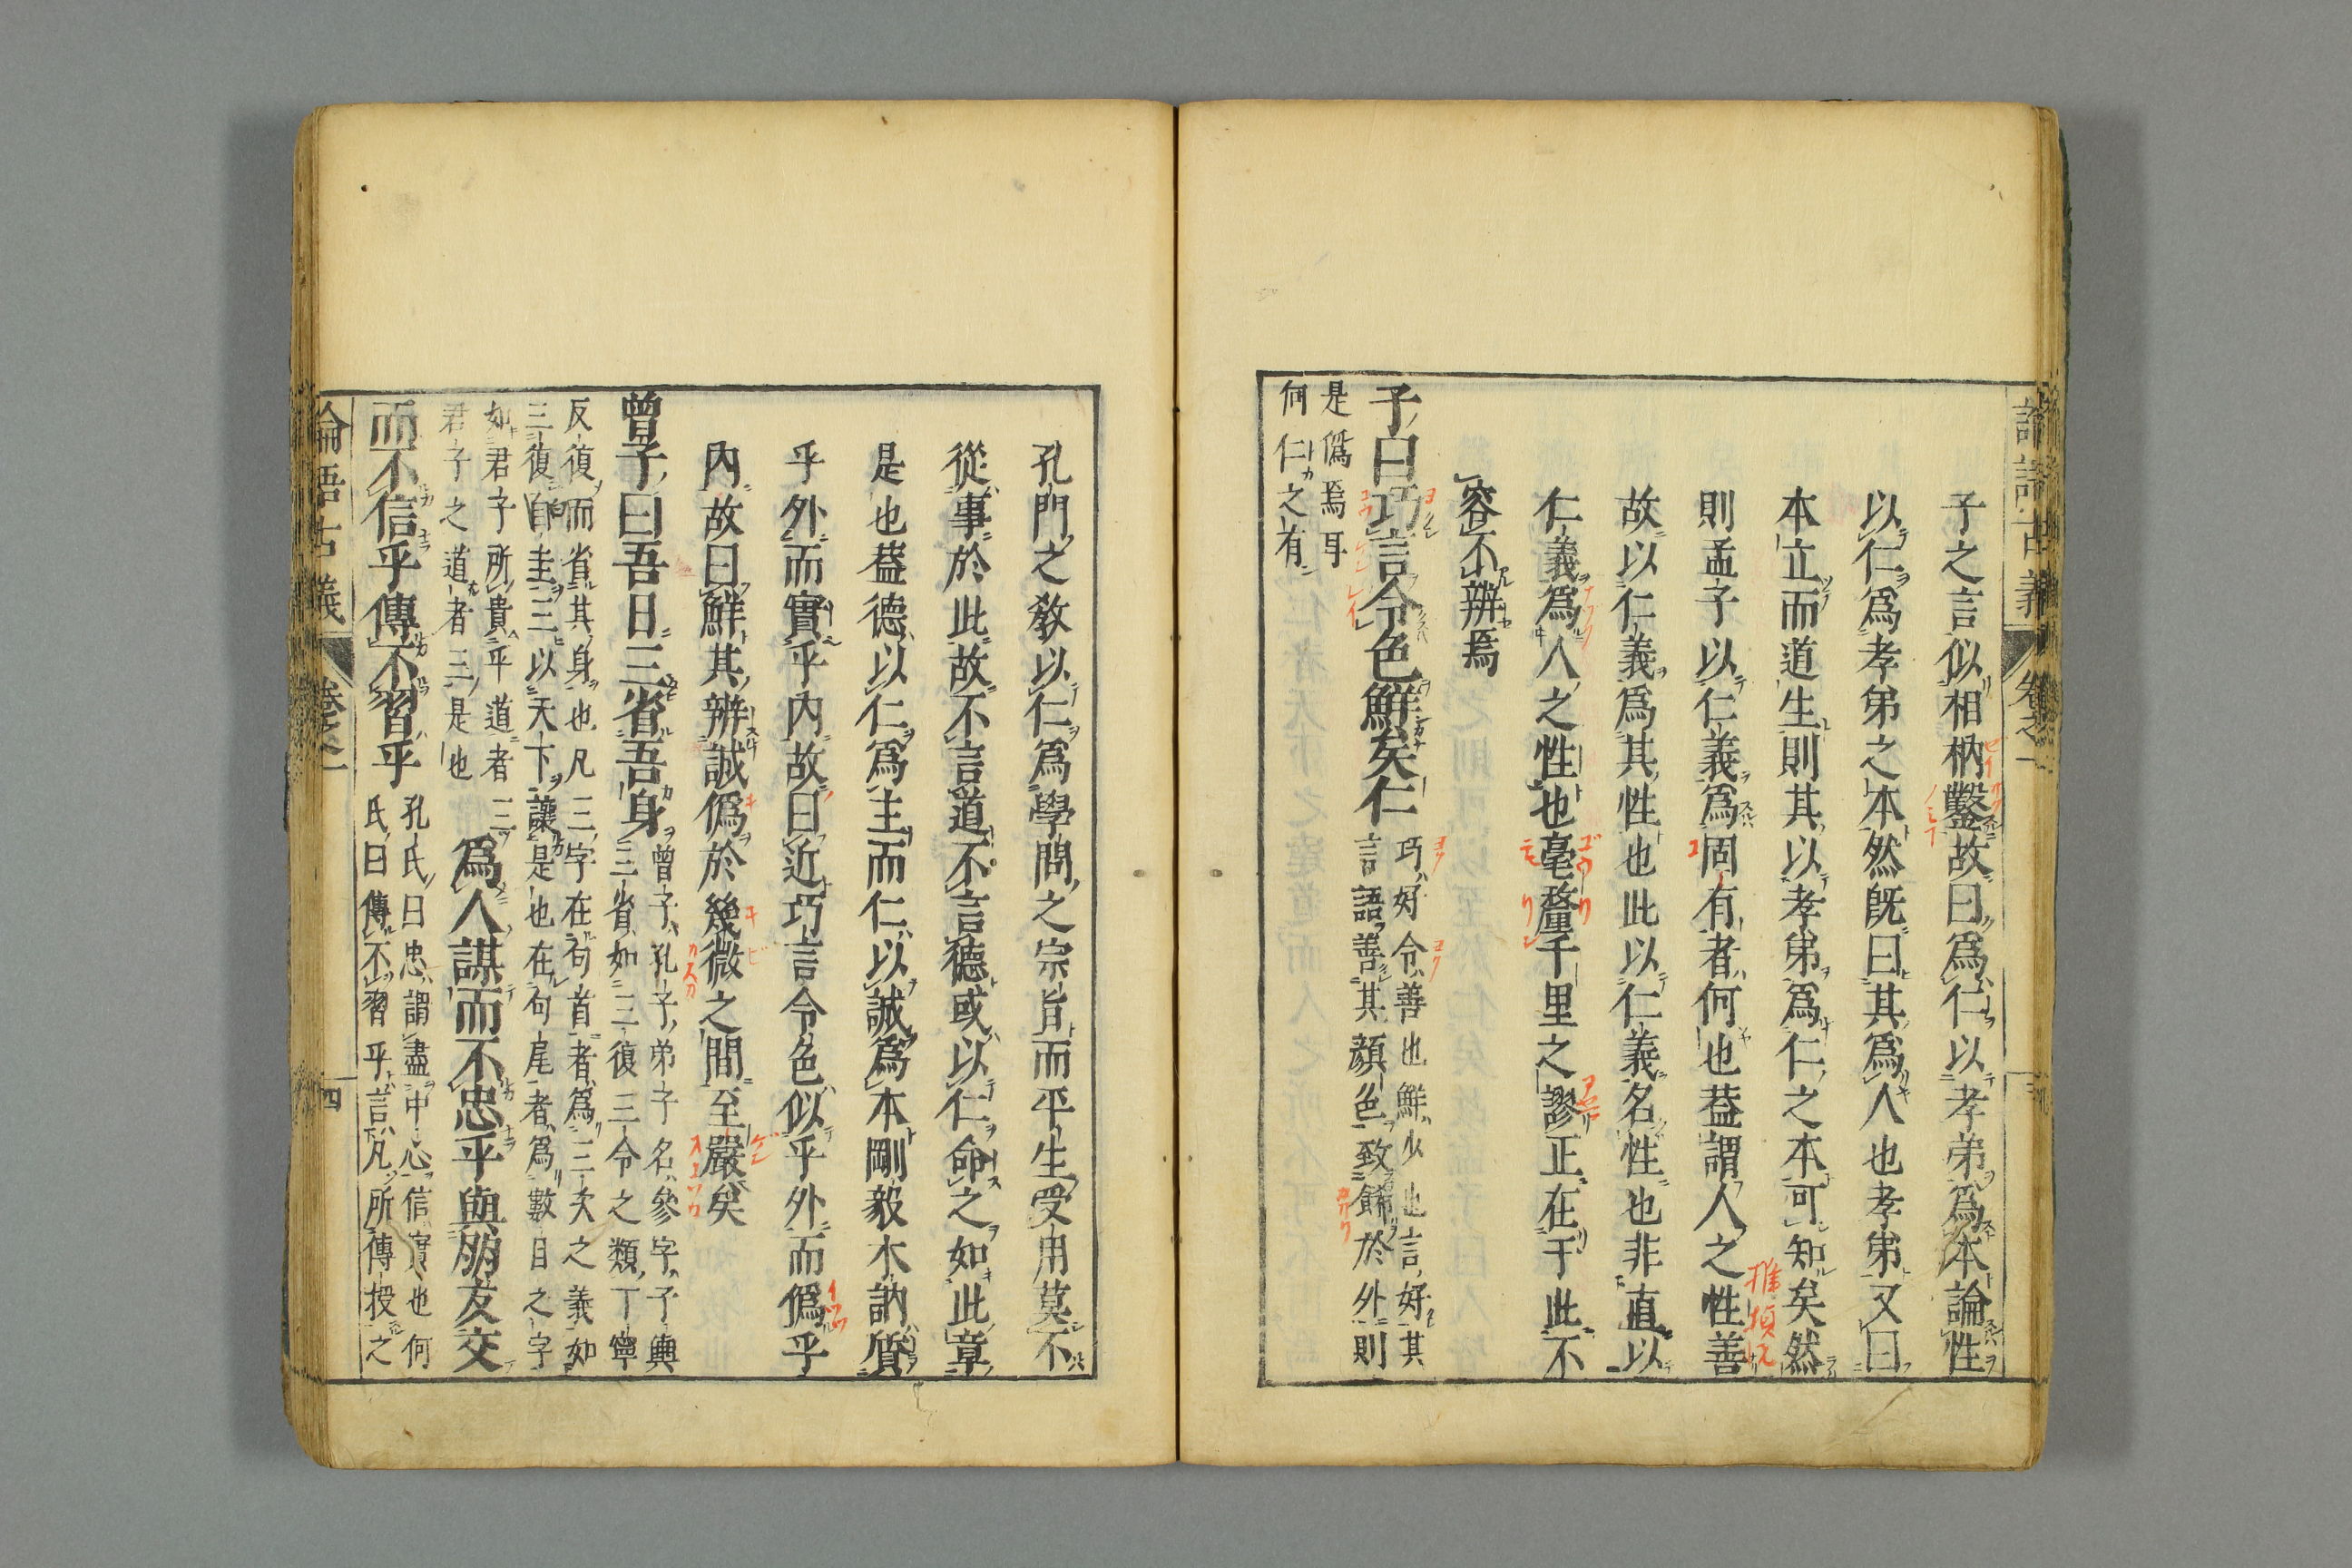 論語古義
卷之一
子之言似相枘鑿故曰爲仁以孝弟爲本論性
以仁爲孝弟之本然既曰其爲人也孝弟又曰
本立而道生則其以孝弟爲仁之本可知矣然
則孟子以仁義爲固有者何也葢謂人之性善
故以仁義爲其性也此以仁義名性也非直以
仁義爲人之性也毫釐千里之謬正在于此不
容不辨焉
子曰巧言令色鮮矣仁
巧好令善也鮮少也言好其
言語善其顔色致餙於外則
是僞焉耳
何仁之有
孔門之敎以仁爲學問之宗旨而平生受用莫不
從事於此故不言道不言德或以仁命之如此章
是也葢德以仁爲主而仁以誠爲本剛毅木訥質
乎外而實乎内故曰近巧言令色似乎外而僞乎
内故曰鮮其辨誠僞於幾微之間至嚴矣
曾子曰吾日三省吾身
曾子孔子弟子名參字子輿
三省如三復三令之類丁寧
反復而省其身也凡三字在句首者爲三次之義如
三復白圭三以天下讓是也在句尾者爲數目之字
如君子所貴乎道者三
君子之道者三是也
爲人謀而不忠乎與朋友交
而不信乎傳不習乎
孔氏曰忠謂盡中心信實也何
氏曰傳不習乎言凡所傳授之
論語古義
卷之一
四